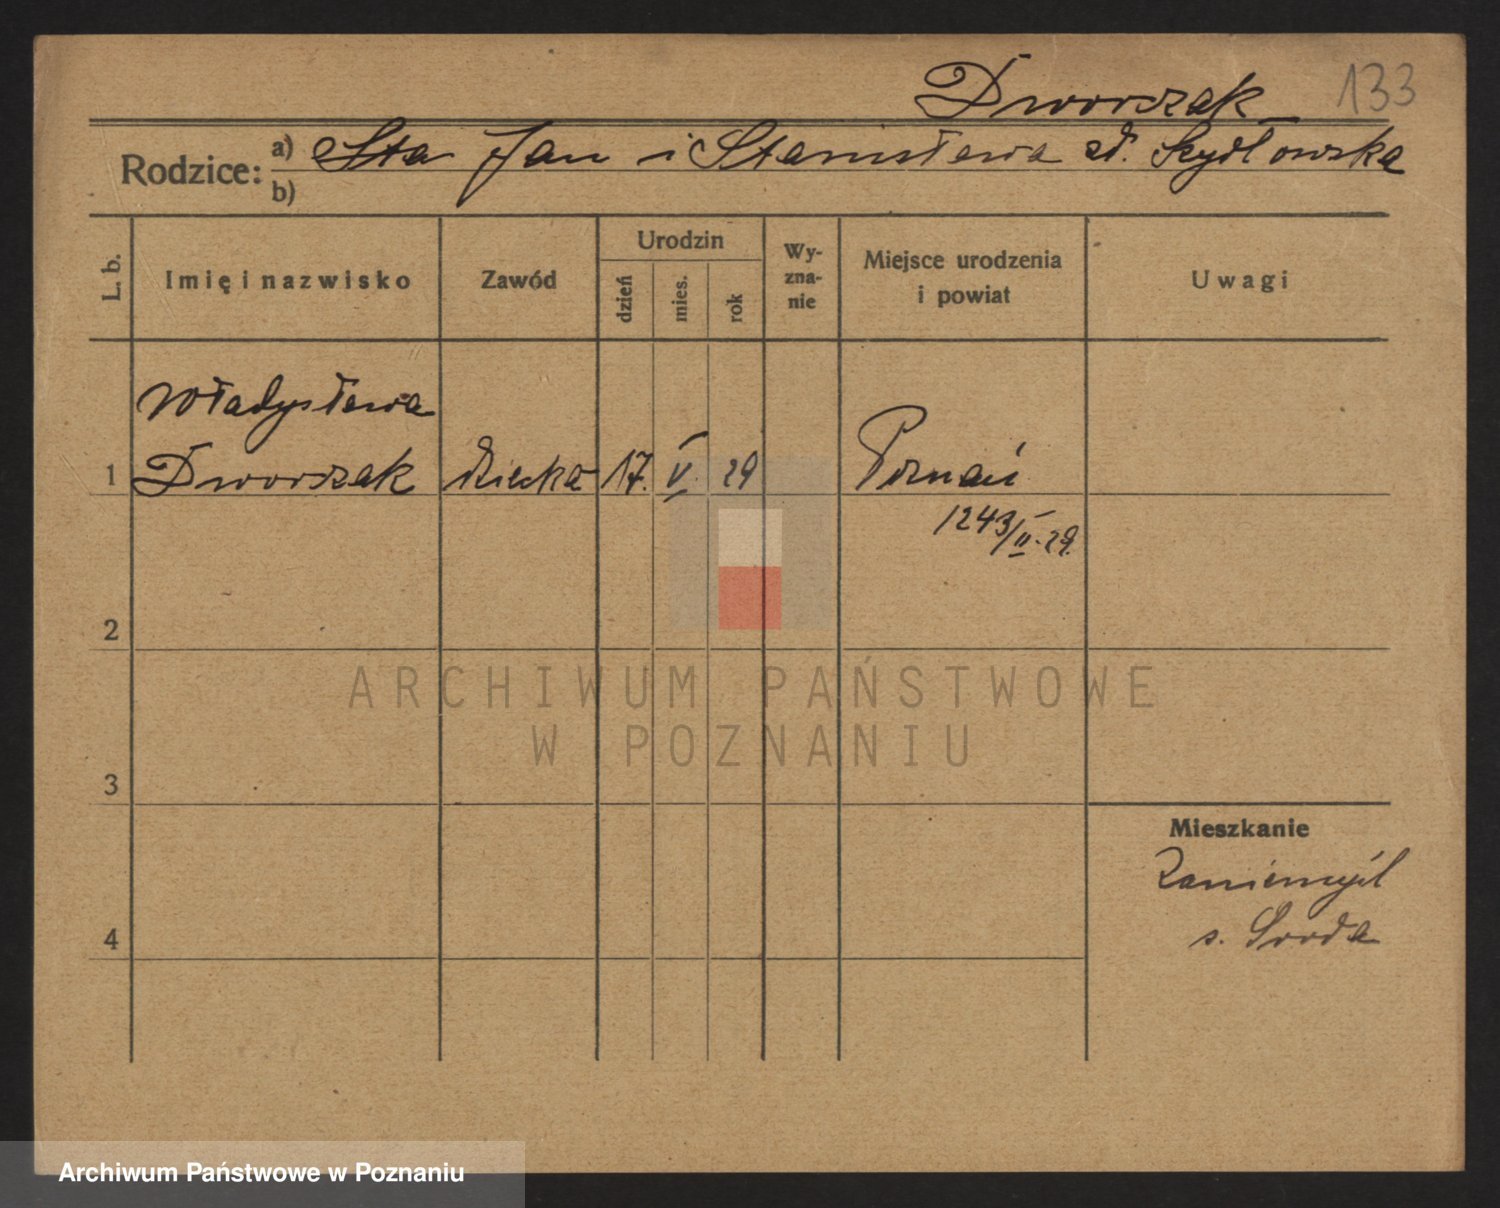 Dworszak 133
Rodzice: a) Sta Jan i Stanisława d. Szydłowska
b)
L. b. Imię i nazwisko Zawód Urodzin dzień mies. rok Wy-zna-nie Miejsce urodzenia i powiat Uwagi
Władysława
1 Dworszak 17. V. 29 Poznań
1243/II.29.
2
ARCHIWUM PAŃSTWOWE
W POZNANIU
3
Mieszkanie
Zaniemyśl
4 s. Środa
Archiwum Państwowe w Poznaniu